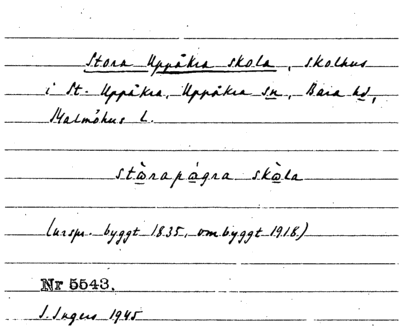 Stora Uppåkra skola, skolhus
i St. Uppåkra, Uppåkra sn, Bara hd,
Malmöhus l.
stòrapágra skòla
(urspr. byggt 1835, ombyggt 1918)
Nr 5543.
I. Ingers 1945